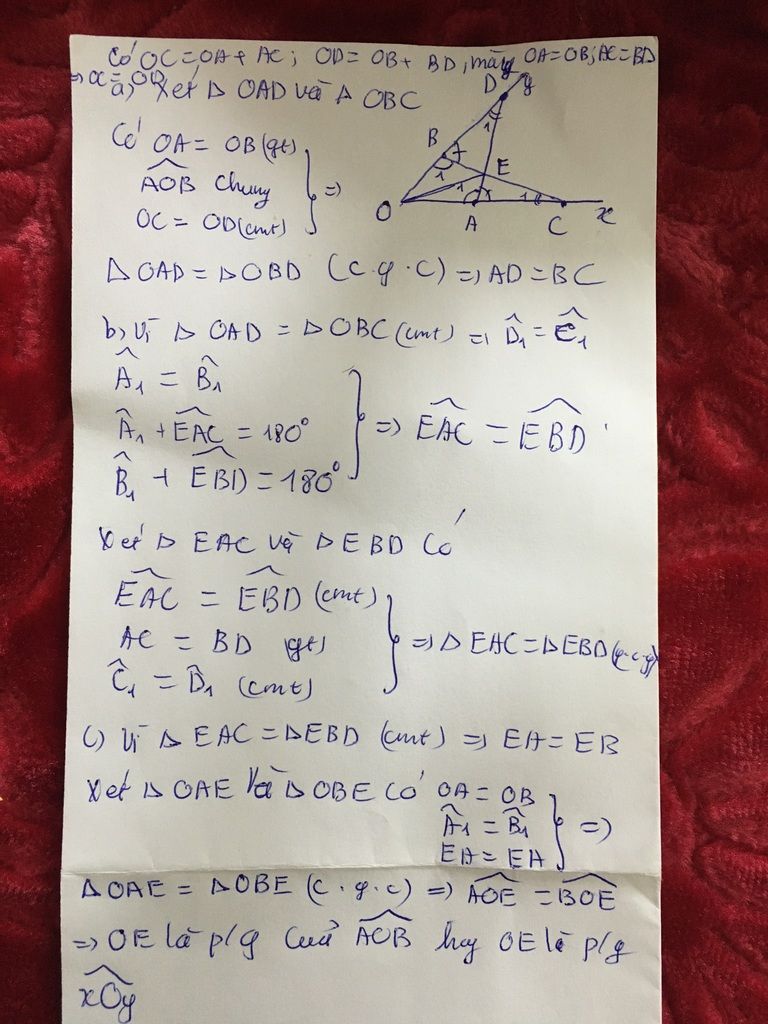 Có OC = OA + AC; OD = OB + BD, mà OA = OB; AC = BD
=> OC = OD
a, Xét Δ OAD và Δ OBC
Có OA = OB (gt)
AOB chung
OC = OD (cmt)
=>
D y
B
1
1
E
1
1
O
A
C
x
Δ OAD = Δ OBD (c.g.c) => AD = BC
b, Vì Δ OAD = Δ OBC (cmt) => D̂1 = Ĉ1
Â1 = B̂1
Â1 + EAC = 180°
B̂1 + EBD = 180°
=> EAC = EBD
Xét Δ EAC và Δ EBD có
EAC = EBD (cmt)
AC = BD (gt)
Ĉ1 = D̂1 (cmt)
=> Δ EAC = Δ EBD (g.c.g)
c) Vì Δ EAC = Δ EBD (cmt) => EA = EB
Xét Δ OAE và Δ OBE có OA = OB
Â1 = B̂1
EA = EA
=>
Δ OAE = Δ OBE (c.g.c) => AOE = BOE
=> OE là p/g của AOB hay OE là p/g
xOy